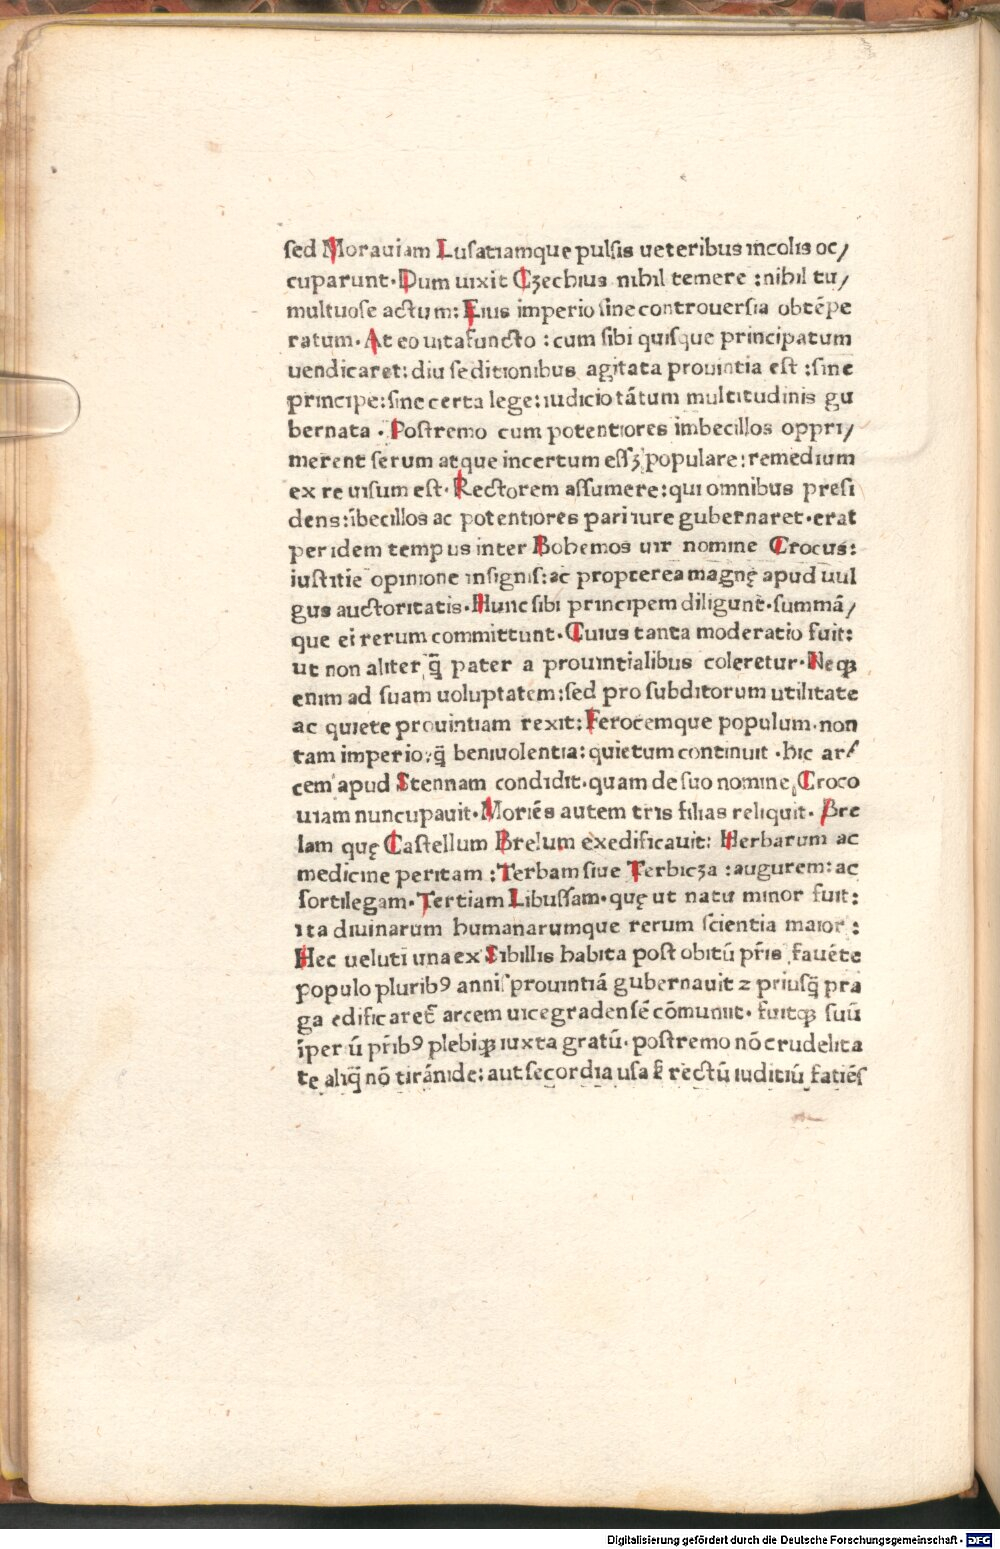 sed Morauiam Lusatiamque pulsis ueteribus incolis oc/
cuparunt. Dum uixit Czechius nihil temere : nihil tu/
multuose actum: Eius imperio sine controuersia obtēpe
ratum. At eo uita functo : cum sibi quisque principatum
uendicaret: diu seditionibus agitata prouintia est : sine
principe: sine certa lege: iudicio tātum multitudinis gu
bernata . Postremo cum potentiores imbecillos oppri/
merent serum atque incertum essꝫ populare: remedium
ex re uisum est. Rectorem assumere: qui omnibus presi
dens: ībecillos ac potentiores pari iure gubernaret. erat
per idem tempus inter Bohemos uir nomine Crocus:
iustitie opinione insignis: ac propterea magnę apud uul
gus auctoritatis. Hunc sibi principem diligunt. summā/
que ei rerum committunt. Cuius tanta moderatio fuit:
ut non aliter q̄ pater a prouintialibus coleretur. Neqꝫ
enim ad suam uoluptatem: sed pro subditorum utilitate
ac quiete prouintiam rexit: Ferocemque populum. non
tam imperio, q̄ beniuolentia: quietum continuit . hic ar/
cem apud Stennam condidit. quam de suo nomine, Croco
uiam nuncupauit. Moriēs autem tris filias reliquit. Bre
lam quę Castellum Brelum exedificauit: Herbarum ac
medicine peritam : Terbam siue Terbicza : augurem: ac
sortilegam. Tertiam Libussam. quę ut natu minor fuit:
ita diuinarum humanarumque rerum scientia maior :
Hec ueluti una ex Sibillis habita post obitū pr̄is fauēte
populo pluribꝰ annis prouintiā gubernauit ⁊ priusq̄ pra
ga edificaret̄ arcem uicegradensē cōmuniit. fuitqꝫ suū
īper ū pr̄ibꝰ plebiqꝫ iuxta gratū. postremo nō crudelita
te aliq̄ nō tirānide: aut secordia usa ꝫ rectū iuditiū fatiēs
Digitalisierung gefördert durch die Deutsche Forschungsgemeinschaft - DFG